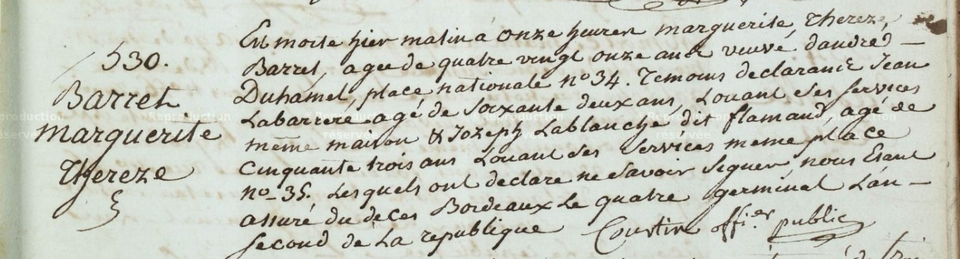 530.
Barret
marguerite
Thereze
Est morte hier matin à onze heures marguerite Thereze
Barret, agee de quatre vingt onze ans veuve d'andré
Duhamel, place nationale n° 34. Temoins declarans Jean
Labarrere agé de soixante deux ans, Louant ses services
meme maison & Jozeph Lablanche dit flamand, agé de
cinquante trois ans Louant ses services meme place
n° 35. Lesquels ont declare ne savoir signer nous Etant
assuré du deces Bordeaux Le quatre germinal L'an
second de La republique Courtin offi.er public
Reproduction réservée
Reproduction réservée
Reproduction réservée
Reproduction réservée